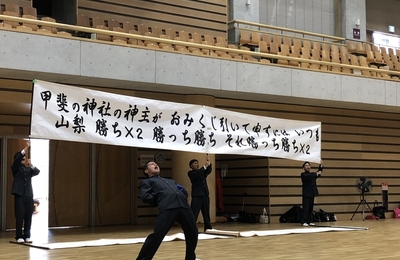 甲斐の神社の神主が おみくじ引いて申すには いつも
山梨 勝ち×2 勝っち勝ち それ勝っち勝ち×2